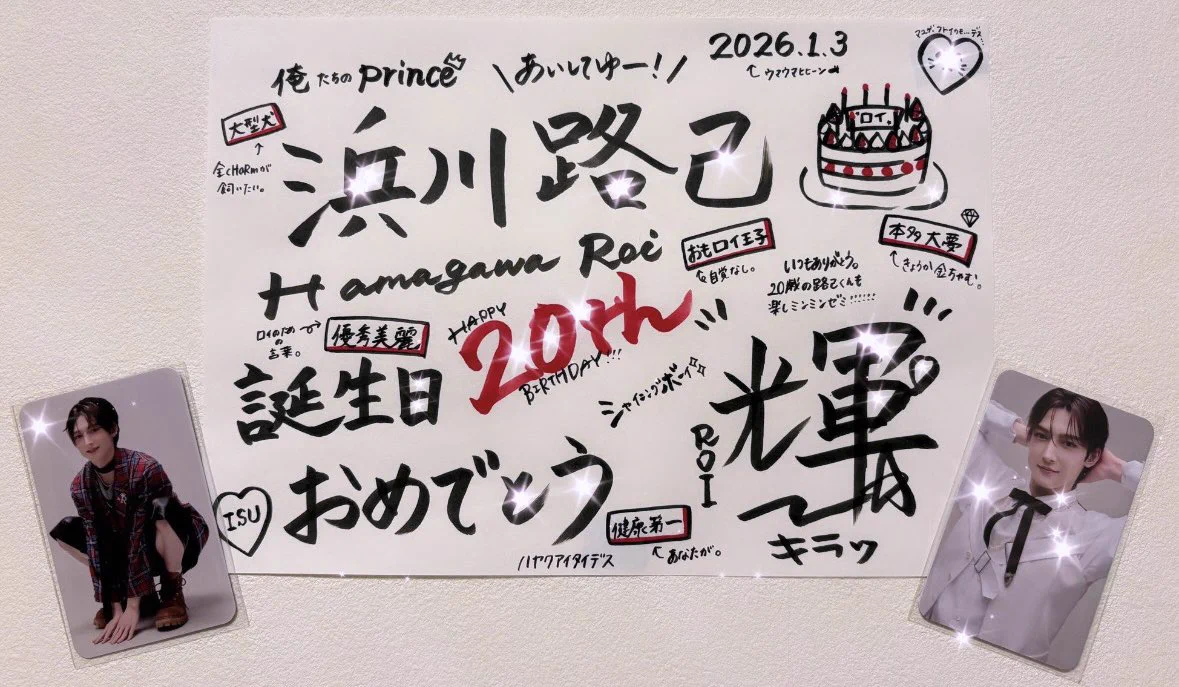 俺たちのprince
\あいしてゆー!/
2026.1.3
↑ウマウマヒヒーン
大型犬
全cHARmが
飼いたい。
浜川路己
ロイ
Hamagawa Roi
おもロイ王子
自覚なし。
本多大夢
きょうか金ちゃむ。
いつもありがとう。
20歳の路己くんも
楽しミンミンゼミ!!!!!!
ロイのため
の
言葉。
優秀美麗
HAPPY
20th
BIRTHDAY!!!
誕生日
シャイニングボーイ
輝
ROI
おめでとう
ISU
健康第一
あなたが。
キラッ
ハヤクアイタイデス